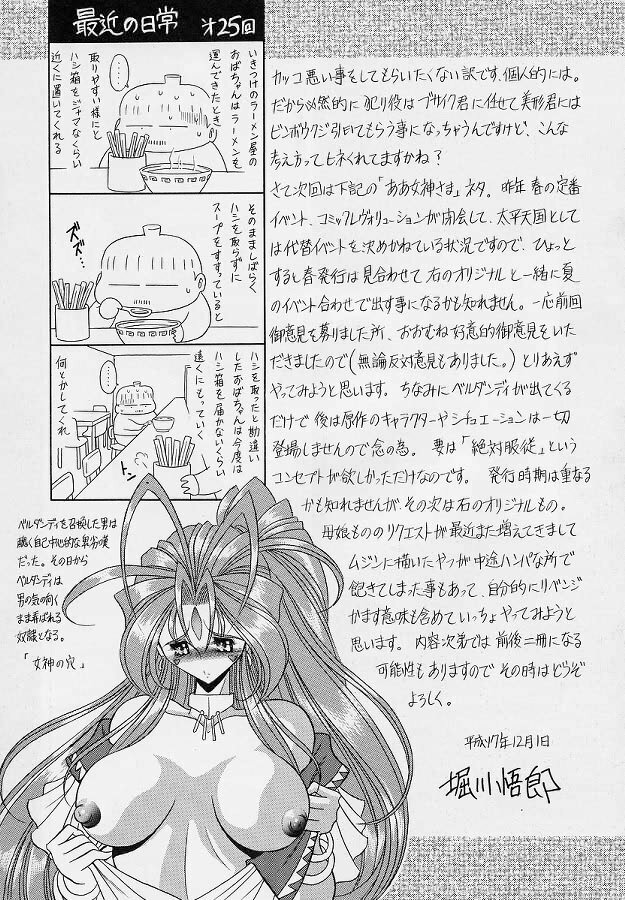 最近の日常 第25回
いきつけのラーメン屋の
おばちゃんはラーメンを
運んできたとき
取りやすい様にと
ハシ箱をジャマなくらい
近くに置いてくれる
・・・・
そのまましばらく
ハシを取らずに
スープをすすっていると
ズズ…
ハシを取ったと勘違い
したおばちゃんは今度は
ハシ箱を届かないくらい
遠くにもっていく
何とかしてくれ
・・・・
トン
カッコ悪い事をしてもらいたくない訳です、個人的には。
だから必然的に犯り役はブサイク君に任せて美形君には
ビンボウクジ引いてもらう事になっちゃうんですけど、こんな
考え方ってヒネくれてますかね?
さて次回は下記の「ああ女神さま」ネタ。昨年春の定番
イベント、コミックレヴォリューションが閉会して、太平天国として
は代替イベントを決めかねている状況ですので、ひょっと
すると春発行は見合わせて右のオリジナルと一緒に夏
のイベント合わせで出す事になるかも知れません。一応前回
御意見を募りました所、おおむね好意的御意見をいた
だきましたので(無論反対意見もありました。)とりあえず
やってみようと思います。ちなみにベルダンディが出てくる
だけで後は原作のキャラクターやシチュエーションは一切
登場しませんので念の為。要は「絶対服従」という
コンセプトが欲しかっただけなのです。発行時期は重なる
かも知れませんが、その次は右のオリジナルもの。
母娘もののリクエストが最近また増えてきまして
ムジンに描いたやつが中途ハンパな所で
飽きてしまった事もあって、自分的にリベンジ
かます意味も含めていっちょやってみようと
思います。内容次第では前後二冊になる
可能性もありますのでその時はどうぞ
よろしく。
平成17年12月1日
堀川悟郎
ベルダンディを召喚した男は
醜く自己中心的な男
だった。その日から
ベルダンディは
男の気の向く
まま弄ばれる
奴隷となる。
「女神の穴」